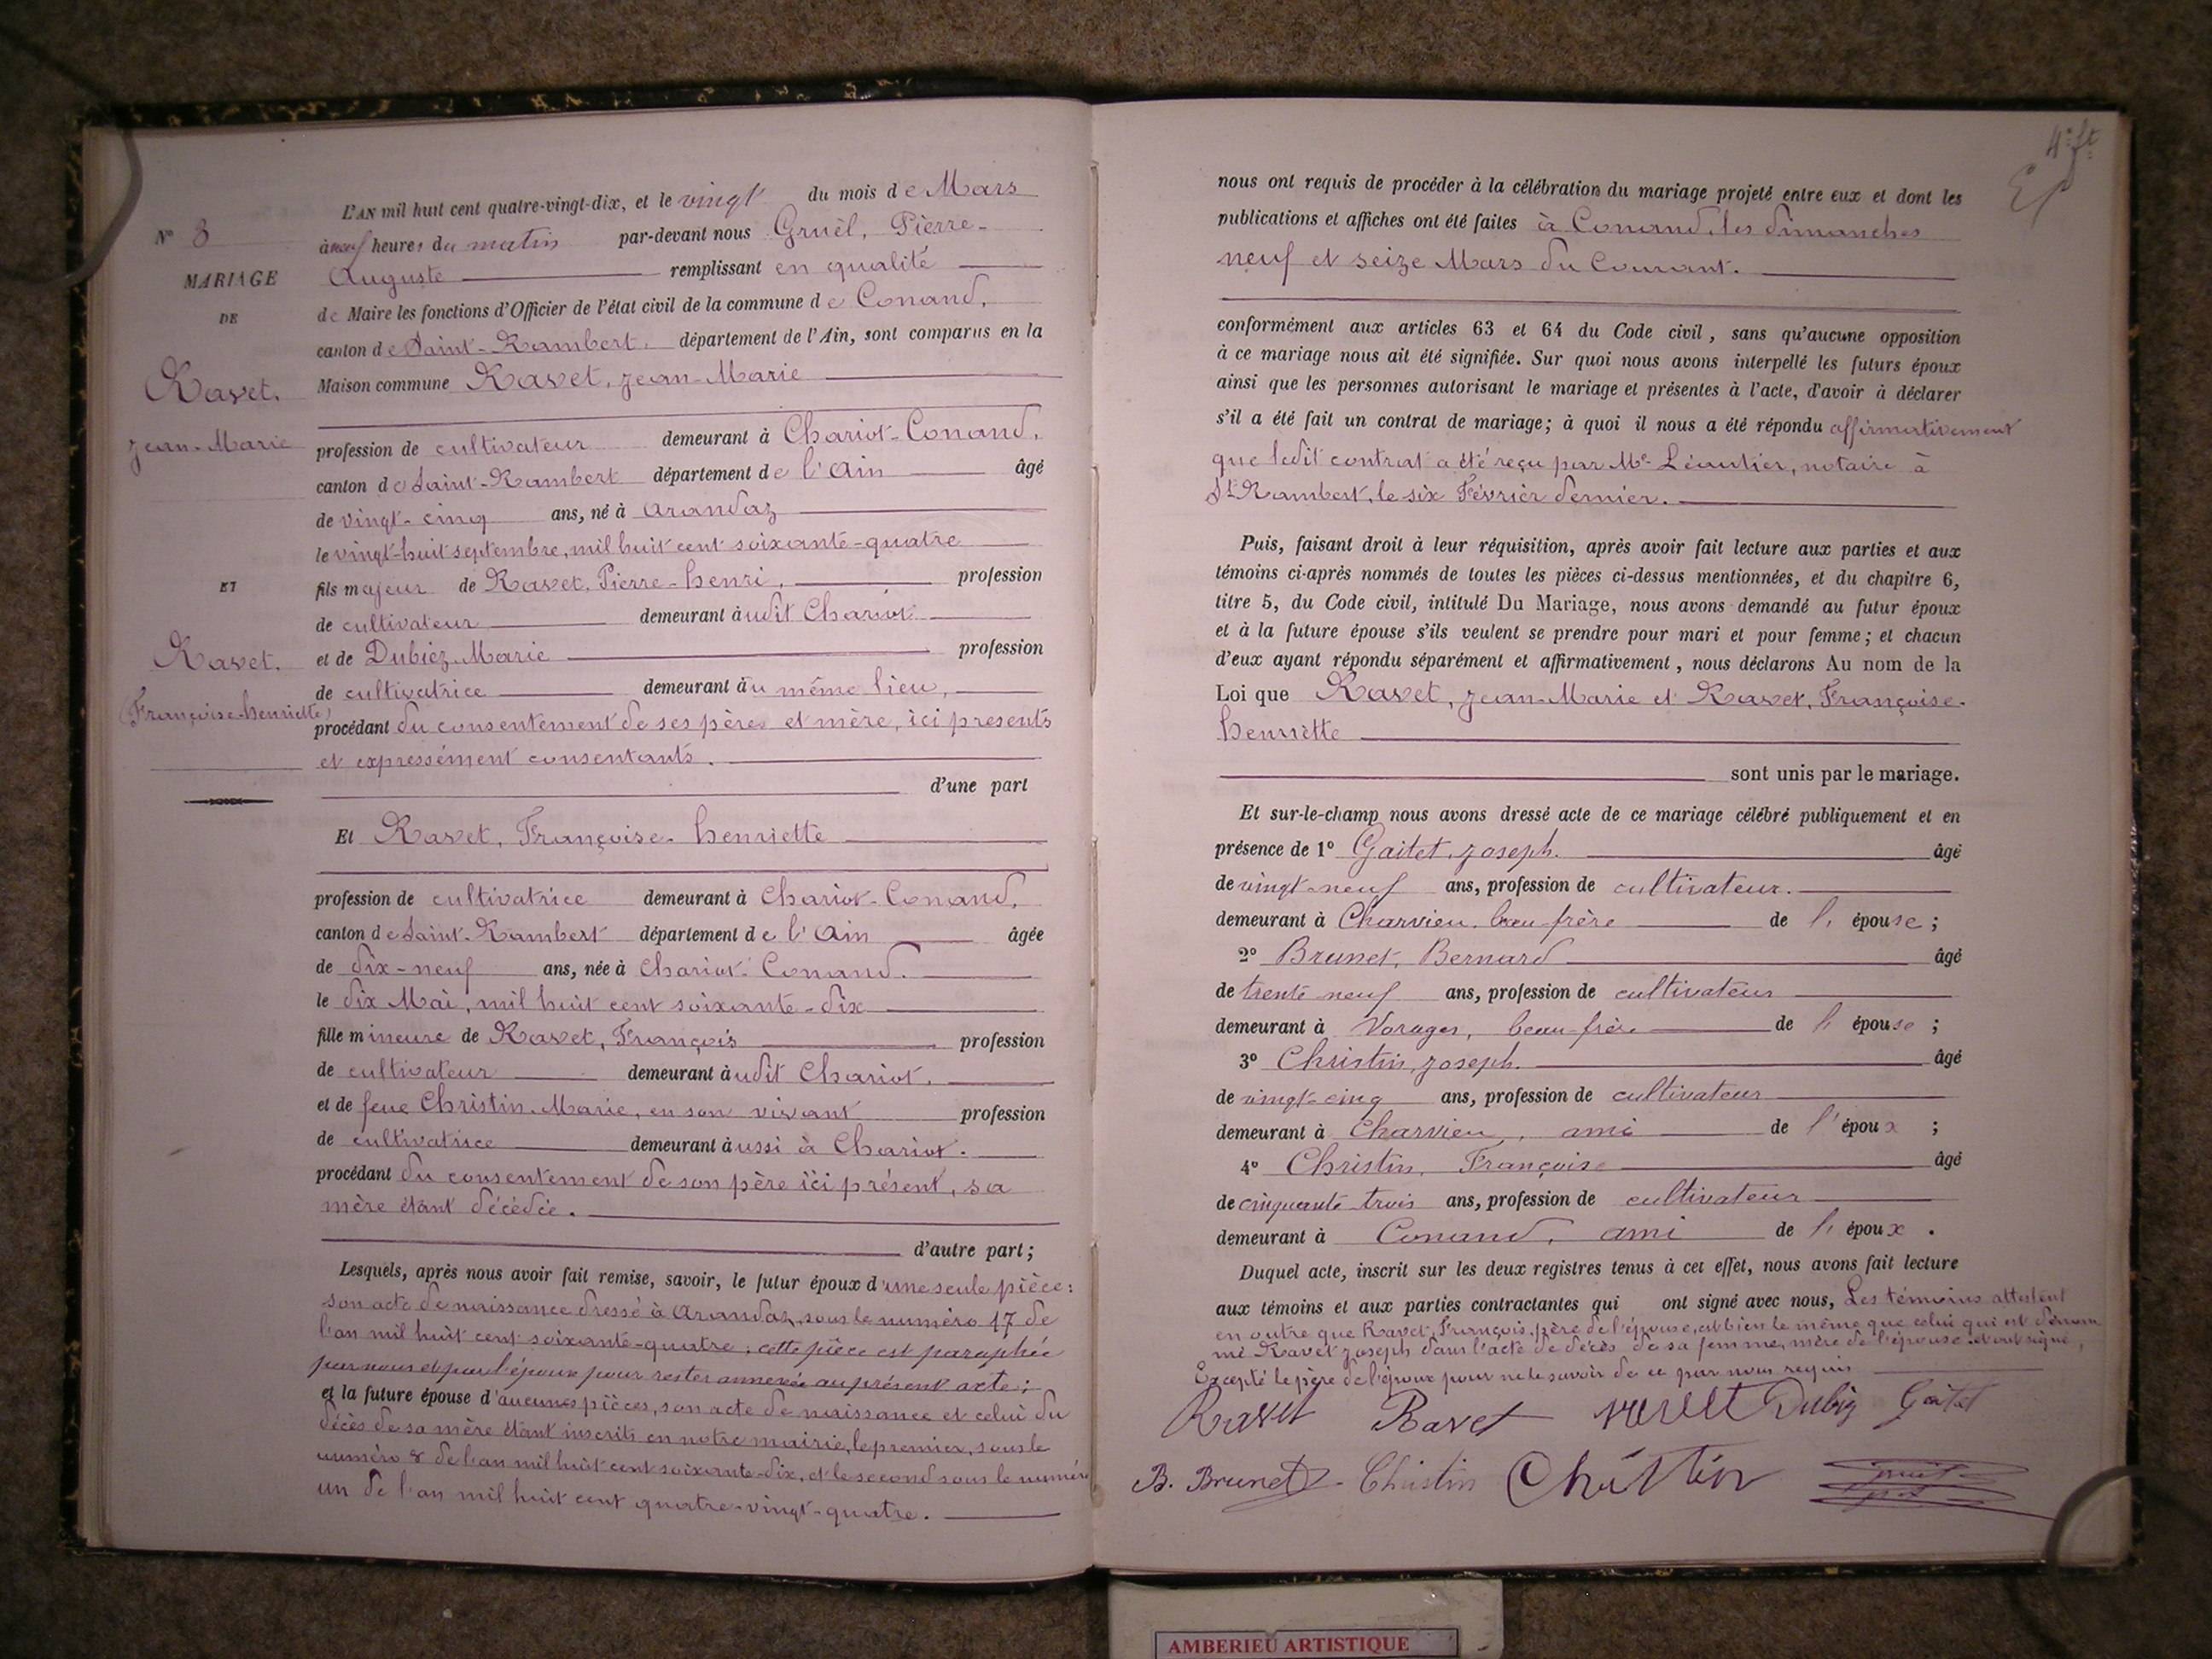 L'AN mil huit cent quatre-vingt-dix, et le vingt du mois de Mars
à neuf heures du matin par-devant nous Gruel, Pierre-
Auguste remplissant en qualité
de Maire les fonctions d'Officier de l'état civil de la commune de Conand,
canton de Saint-Rambert, département de l'Ain, sont comparus en la
Maison commune Ravet, Jean-Marie
profession de cultivateur demeurant à Chariot-Conand,
canton de Saint-Rambert département de l'Ain âgé
de vingt-cinq ans, né à Arandaz
le vingt-huit septembre, mil huit cent soixante-quatre
fils majeur de Ravet, Pierre-henri, profession
de cultivateur demeurant àudit Chariot
et de Dubiez Marie profession
de cultivatrice demeurant àu même lieu,
procédant du consentement de ses pères et mère, ici presents
et expressément consentants.
d'une part
N° 3
MARIAGE
DE
Ravet,
Jean-Marie
ET
Ravet,
(Françoise-henriette)
Et Ravet, Françoise-henriette
profession de cultivatrice demeurant à Chariot-Conand,
canton de Saint-Rambert département de l'Ain âgée
de dix-neuf ans, née à Chariot-Conand.
le dix Mai, mil huit cent soixante-dix
fille mineure de Ravet, François profession
de cultivateur demeurant àudit Chariot,
et de feue Christin Marie, en son vivant profession
de cultivatrice demeurant àussi à Chariot.
procédant du consentement de son père ici présent, sa
mère étant décédée.
d'autre part;
Lesquels, après nous avoir fait remise, savoir, le futur époux d'une seule pièce:
son acte de naissance dressé à Arandaz, sous le numéro 17 de
l'an mil huit cent soixante-quatre; cette pièce est paraphée
par nous et par l'époux pour rester annexée au présent acte;
et la future épouse d'aucunes pièces, son acte de naissance et celui du
décès de sa mère étant inscrits en notre mairie, le premier, sous le
numéro 8 de l'an mil huit cent soixante-dix, et le second sous le numéro
un de l'an mil huit cent quatre-vingt-quatre.
4e ft
nous ont requis de procéder à la célébration du mariage projeté entre eux et dont les
publications et affiches ont été faites à Conand, les dimanches
neuf et seize Mars du Courant.
conformément aux articles 63 et 64 du Code civil, sans qu'aucune opposition
à ce mariage nous ait été signifiée. Sur quoi nous avons interpellé les futurs époux
ainsi que les personnes autorisant le mariage et présentes à l'acte, d'avoir à déclarer
s'il a été fait un contrat de mariage; à quoi il nous a été répondu affirmativement
que ledit contrat a été reçu par Me Léautier, notaire à
St Rambert, le six Février dernier.
Puis, faisant droit à leur réquisition, après avoir fait lecture aux parties et aux
témoins ci-après nommés de toutes les pièces ci-dessus mentionnées, et du chapitre 6,
titre 5, du Code civil, intitulé Du Mariage, nous avons demandé au futur époux
et à la future épouse s'ils veulent se prendre pour mari et pour femme; et chacun
d'eux ayant répondu séparément et affirmativement, nous déclarons Au nom de la
Loi que Ravet, Jean-Marie et Ravet, Françoise-
henriette
sont unis par le mariage.
Et sur-le-champ nous avons dressé acte de ce mariage célébré publiquement et en
présence de 1° Gaitet, Joseph. âgé
de vingt-neuf ans, profession de cultivateur.
demeurant à Charvieu, beau-frère de l' épouse;
2° Brunet, Bernard âgé
de trente neuf ans, profession de cultivateur
demeurant à Vorages, beau-frère de l' épouse;
3° Christin, Joseph. âgé
de vingt-cinq ans, profession de cultivateur
demeurant à Charvieu, ami de l' époux;
4° Christin, Françoise âgé
de cinquante trois ans, profession de cultivateur
demeurant à Conand, ami de l' époux.
Duquel acte, inscrit sur les deux registres tenus à cet effet, nous avons fait lecture
aux témoins et aux parties contractantes qui ont signé avec nous, Les témoins attestent
en outre que Ravet, François, père de l'épouse, est bien le même que celui qui est dénom
mé Ravet Joseph dans l'acte de décès de sa femme, mère de l'épouse et ont signé,
Excepté le père de l'époux pour ne le savoir de ce par nous requis
Ravet Ravet Ravet Dubiez Gaitet
B. Brunet Christin Christin
AMBERIEU ARTISTIQUE